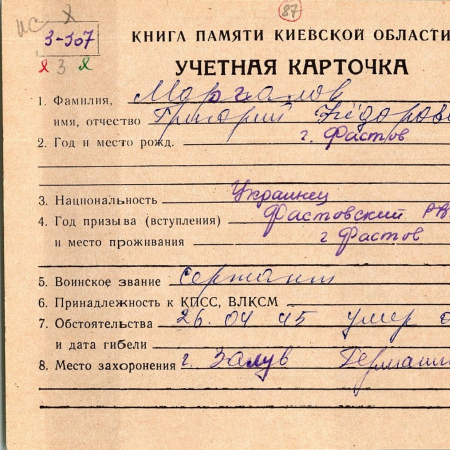 ис х
87
3-307
х 3 х
КНИГА ПАМЯТИ КИЕВСКОЙ ОБЛАСТИ
УЧЕТНАЯ КАРТОЧКА
1. Фамилия,
имя, отчество Григорий Фёдорови
2. Год и место рожд. г. Фастов
3. Национальность Украинец
4. Год призыва (вступления) Фастовский РВ
и место проживания г Фастов
5. Воинское звание сержант
6. Принадлежность к КПСС, ВЛКСМ
7. Обстоятельства 26.04 45 умер о
и дата гибели
8. Место захоронения г. Залув Германи